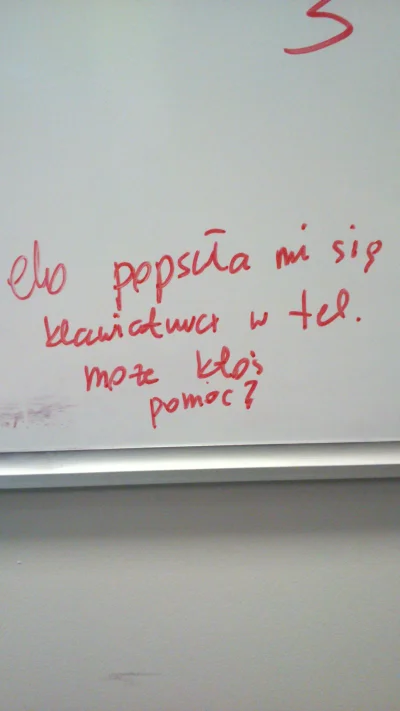 elo popsuła mi się
klawiatura w tel.
może ktoś
pomóc?